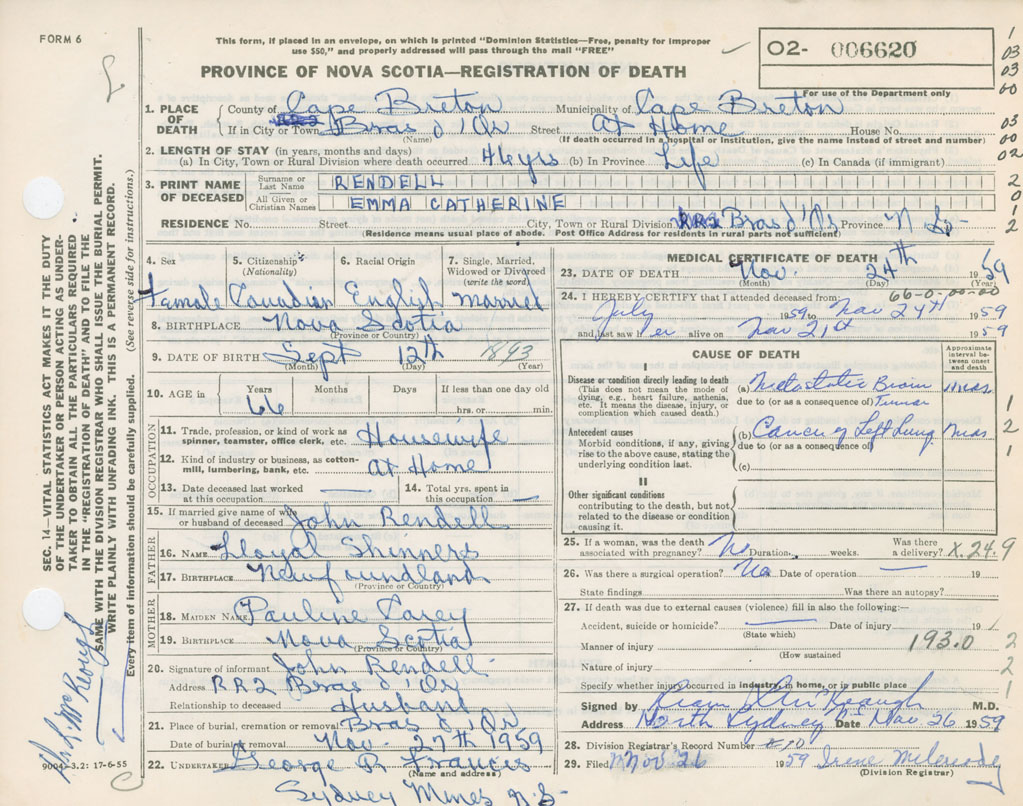 FORM 6
This form, if placed in an envelope, on which is printed "Dominion Statistics—Free, penalty for improper
use $50," and properly addressed will pass through the mail "FREE"
O2- 006620
PROVINCE OF NOVA SCOTIA—REGISTRATION OF DEATH
For use of the Department only
1. PLACE OF DEATH County of Cape Breton Municipality of Cape Breton
If in City or Town Bras d'Or Street At Home House No.
(Name) (If death occurred in a hospital or institution, give the name instead of street and number)
2. LENGTH OF STAY (in years, months and days)
(a) In City, Town or Rural Division where death occurred 46 yrs (b) In Province Life (c) In Canada (if immigrant)
3. PRINT NAME OF DECEASED Surname or Last Name RENDELL
All Given or Christian Names EMMA CATHERINE
RESIDENCE No. Street City, Town or Rural Division RR2 Bras d'Or Province N S-
(Residence means usual place of abode. Post Office Address for residents in rural parts not sufficient)
4. Sex 5. Citizenship (Nationality) 6. Racial Origin 7. Single, Married, Widowed or Divorced (write the word)
Female Canadian English Married
8. BIRTHPLACE Nova Scotia
(Province or Country)
9. DATE OF BIRTH Sept 12th 1893
(Month) (Day) (Year)
10. AGE in Years Months Days If less than one day old
66 hrs. or min.
OCCUPATION
11. Trade, profession, or kind of work as spinner, teamster, office clerk, etc. Housewife
12. Kind of industry or business, as cotton-mill, lumbering, bank, etc. At Home
13. Date deceased last worked at this occupation — 14. Total yrs. spent in this occupation —
15. If married give name of wife or husband of deceased John Rendell
FATHER
16. NAME Lloyal Shinners
17. BIRTHPLACE Newfoundland
(Province or Country)
MOTHER
18. MAIDEN NAME Pauline Carey
19. BIRTHPLACE Nova Scotia
(Province or Country)
20. Signature of informant John Rendell
Address RR2 Bras d'Or
Relationship to deceased Husband
21. Place of burial, cremation or removal Bras d'Or
Date of burial or removal Nov. 27th 1959
22. UNDERTAKER George R Francis
(Name and address)
Sydney Mines N.S-
9004-3.2: 17-6-55
MEDICAL CERTIFICATE OF DEATH
23. DATE OF DEATH Nov. 24th 1959
(Month) (Day) (Year)
66-0-00-00
24. I HEREBY CERTIFY that I attended deceased from:
July 1959 to Nov 24th 1959
and last saw her alive on Nov 21st 1959
CAUSE OF DEATH
Approximate interval between onset and death
I
Disease or condition directly leading to death
(This does not mean the mode of dying, e.g., heart failure, asthenia, etc. It means the disease, injury, or complication which caused death.)
(a) Metastatic Brain
due to (or as a consequence of) Tumor
Antecedent causes
Morbid conditions, if any, giving rise to the above cause, stating the underlying condition last.
(b) Cancer of Left Lung
due to (or as a consequence of)
(c)
II
Other significant conditions
contributing to the death, but not related to the disease or condition causing it.
25. If a woman, was the death associated with pregnancy? No Duration weeks. Was there a delivery? X.24.9
26. Was there a surgical operation? No Date of operation — 19
State findings Was there an autopsy?
27. If death was due to external causes (violence) fill in also the following:—
Accident, suicide or homicide? — Date of injury 19
(State which)
Manner of injury 193.0
(How sustained)
Nature of injury
Specify whether injury occurred in industry, in home, or in public place
Signed by M.D.
Address North Sydney Date Nov 26 1959
28. Division Registrar's Record Number
29. Filed Nov 26 1959 Irene
(Division Registrar)
SEC. 14—VITAL STATISTICS ACT MAKES IT THE DUTY
OF THE UNDERTAKER OR PERSON ACTING AS UNDER-
TAKER TO OBTAIN ALL THE PARTICULARS REQUIRED
IN THE "REGISTRATION OF DEATH" AND TO FILE THE
SAME WITH THE DIVISION REGISTRAR WHO SHALL ISSUE THE BURIAL PERMIT.
WRITE PLAINLY WITH UNFADING INK. THIS IS A PERMANENT RECORD.
Every item of information should be carefully supplied. (See reverse side for instructions.)
1
03
03
00
03
00
02
2
0
1
2
1
2
1
2
2
1